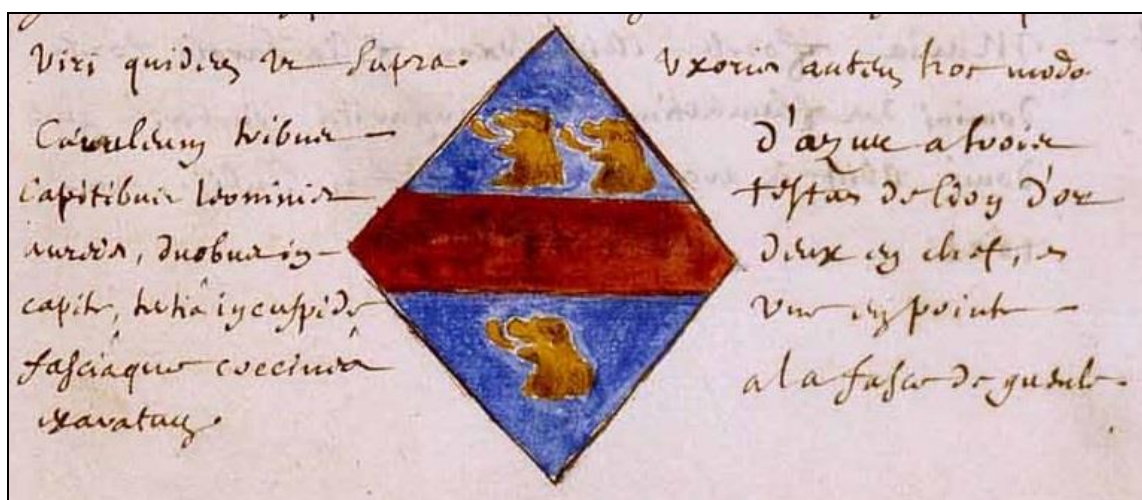 Viri quidem ut supra.
Cæruleum tribus
Capitibus leoninis
aureis, duobus in
capite, tertiâ in cuspide
fasciâque coccineâ
exaratum.
Uxoris autem hoc modo
d'azure a trois
testes de Lion d'or
deux en chef,
une en pointe
a la fasce de gueule.